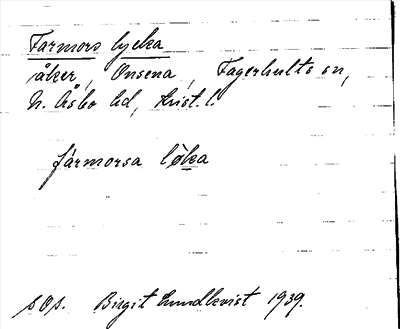 Farmors lycka
åker, Onsena, Fagerhults sn,
N. Åsbo hd, Krist. l.
fármorsa lø̀ka
s Os. Birgit Lundkvist 1939.